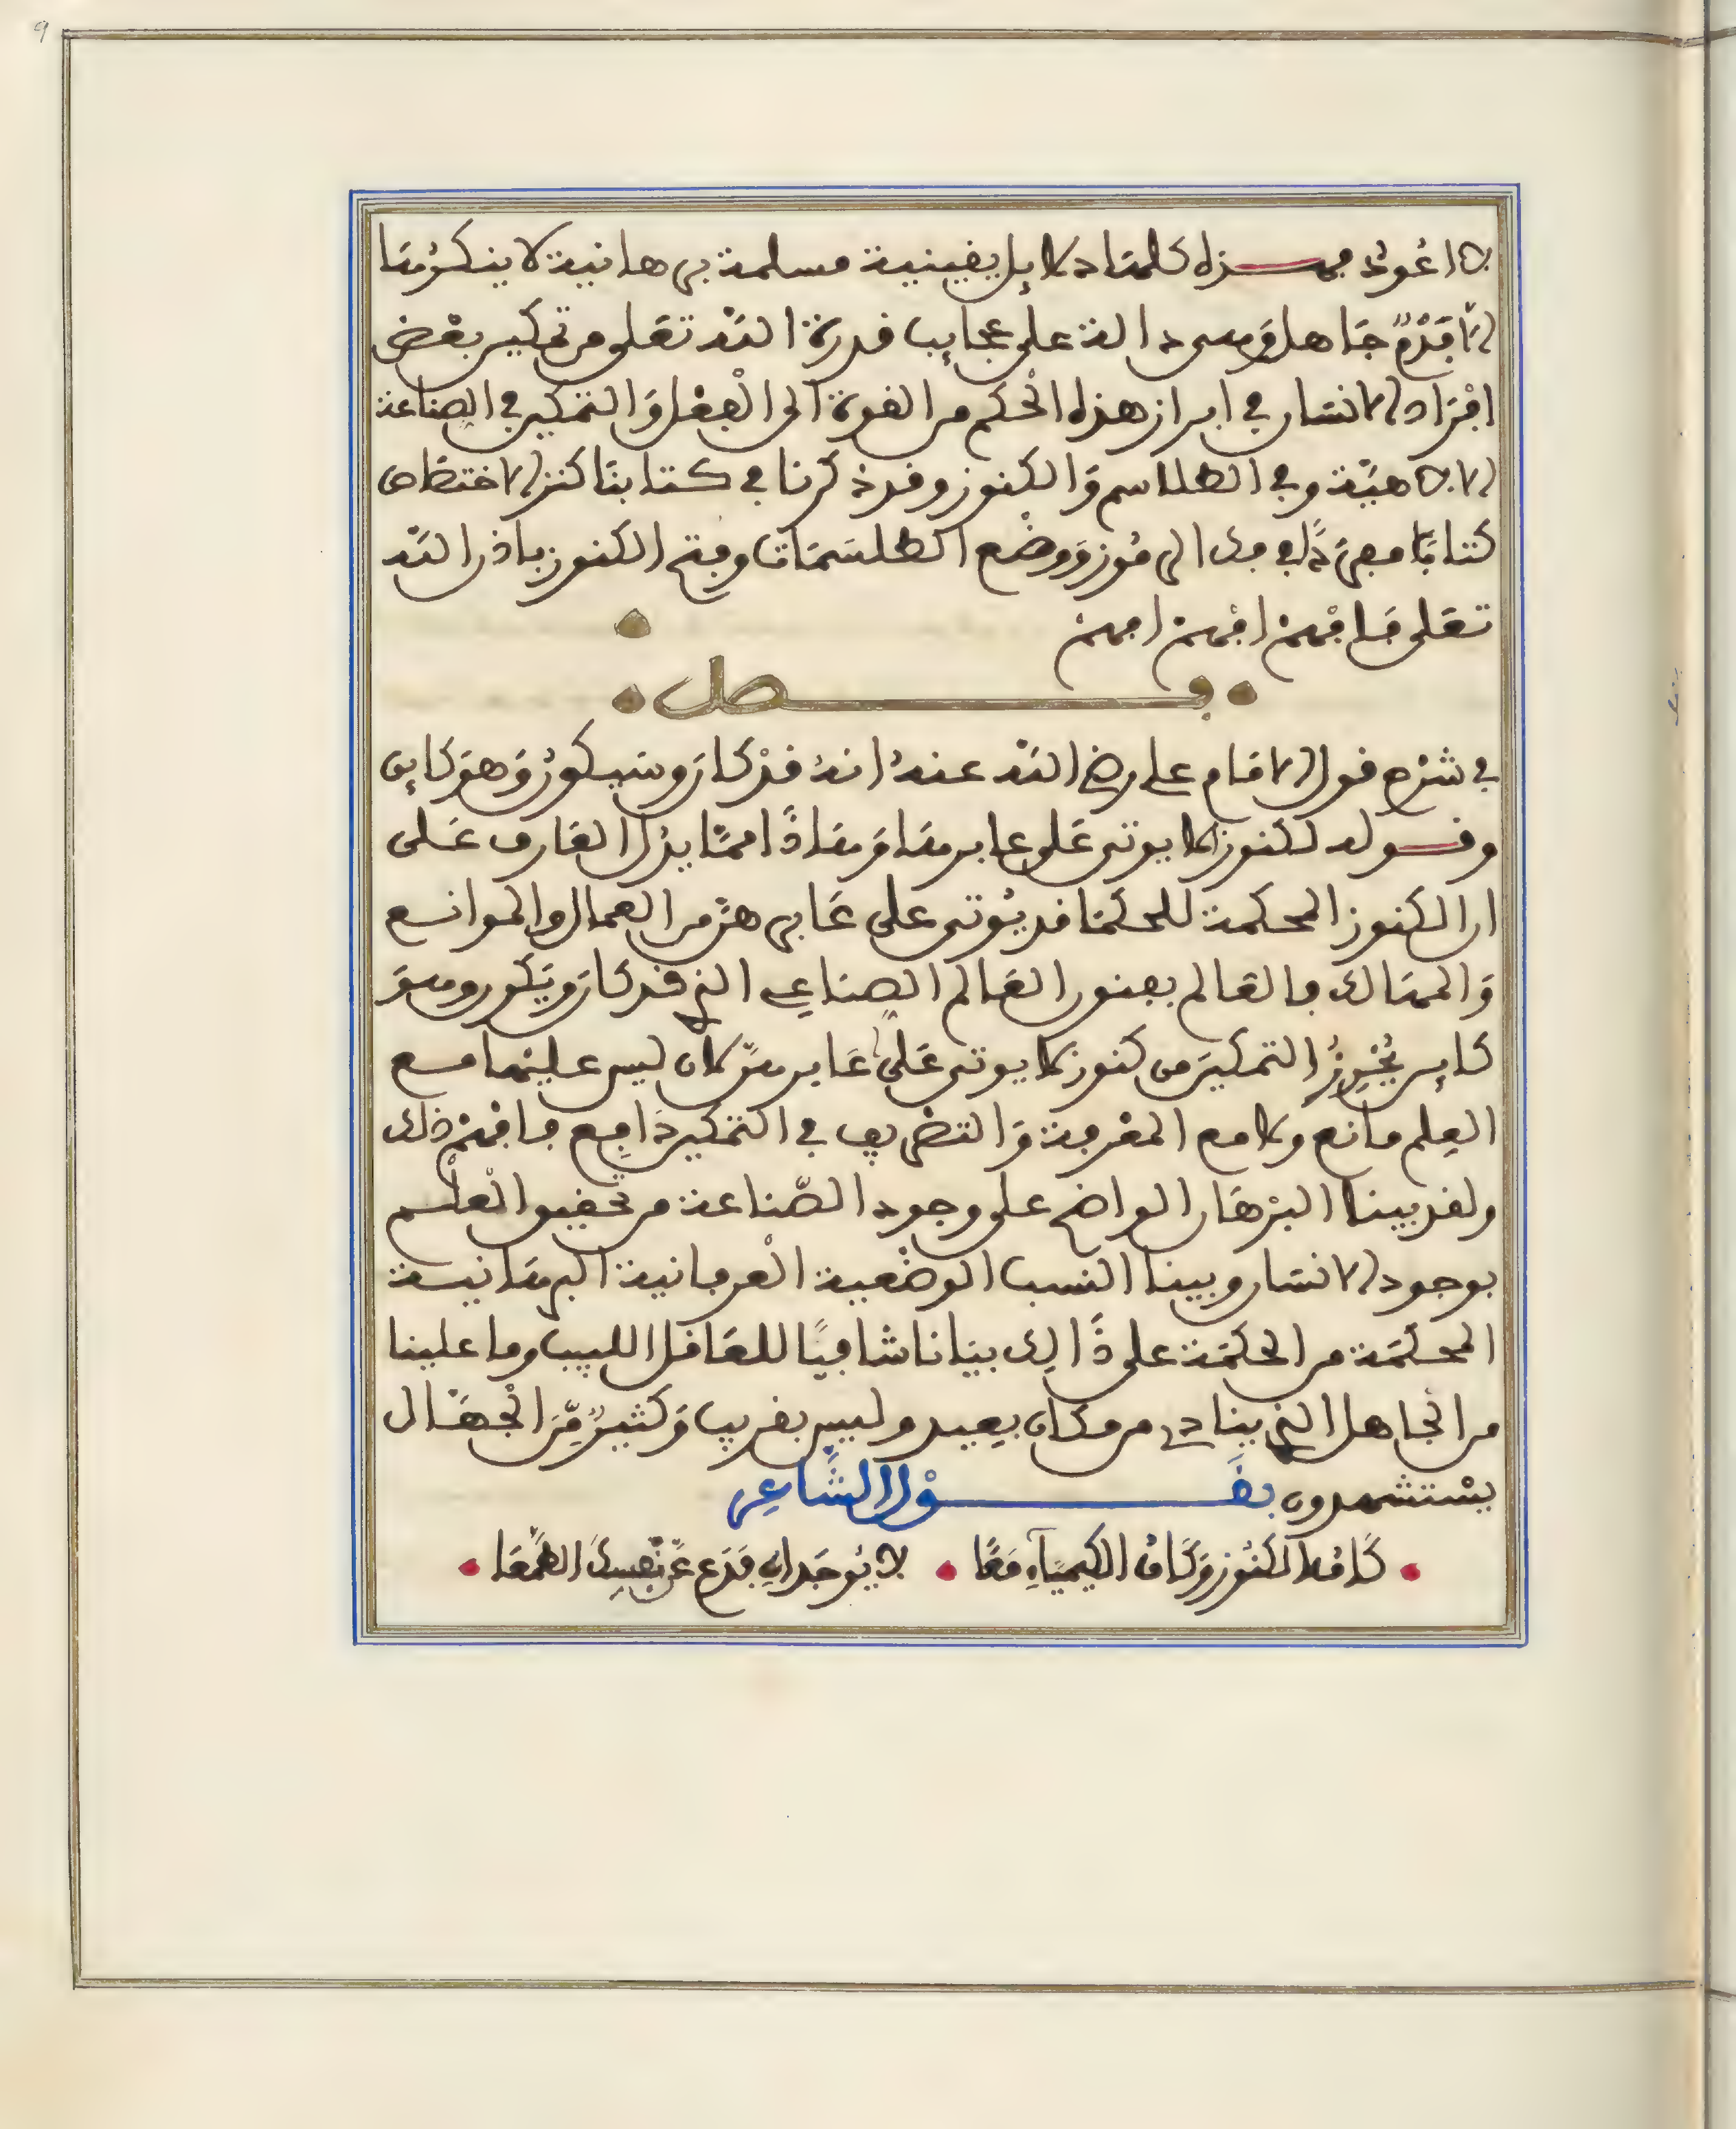 9
لا اعوذ فهذه كلها دلايل يقينية مسلمة برهانية لا ينكرها
الا فدم جاهل وهي دالة على عجايب قدرة الله تعلى من تمكين بعض
افراد الانسان في ابراز هذه الحكم من القوة الى الفعل والتمكين في الصناعة
الالاهية وفي الطلاسم والكنوز وقد ذكرنا في كتابنا كنز الاختصاص
كتابا معرفا في فك الرموز ووضع الطلسمات وفتح الكنوز باذن الله
تعلى فافهم افهم افهم
فصل
في شرح قول الامام علي رضي الله عنه انه قد كان وسيكون وهو كاين
وقوله لكنوز لا يوتى على عابرها وهاذا مما يدل العارف على
ان الكنوز المحكمة للحكما قد يوتى على عابرهن من العمال والموانع
والممالك فالعالم بفنون العالم الصناعي الذي قد كان ويكون وهو
كاين يجوز التمكين من كنوز لا يوتى على عابرهن لان ليس عليها مع
العلم مانع ولا مع المعرفة والتصريف في التمكين دافع فافهم ذلك
ولقد بينا البرهان الواضح على وجود الصناعة من تحقيق العلم
بوجود الانسان وبينا النسب الوضعية العرفانية البرهانية
المحكمة من الحكمة على ذالك بيانا شافيا للعاقل اللبيب وما علينا
من الجاهل الذي ينادي من مكان بعيد وليس بقريب وكثير من الجهال
يستشهدون بقول الشاعر
كاف الكنوز وكاف الكيمياء معا • لا يوجدان فدع عن نفسك الطمعا